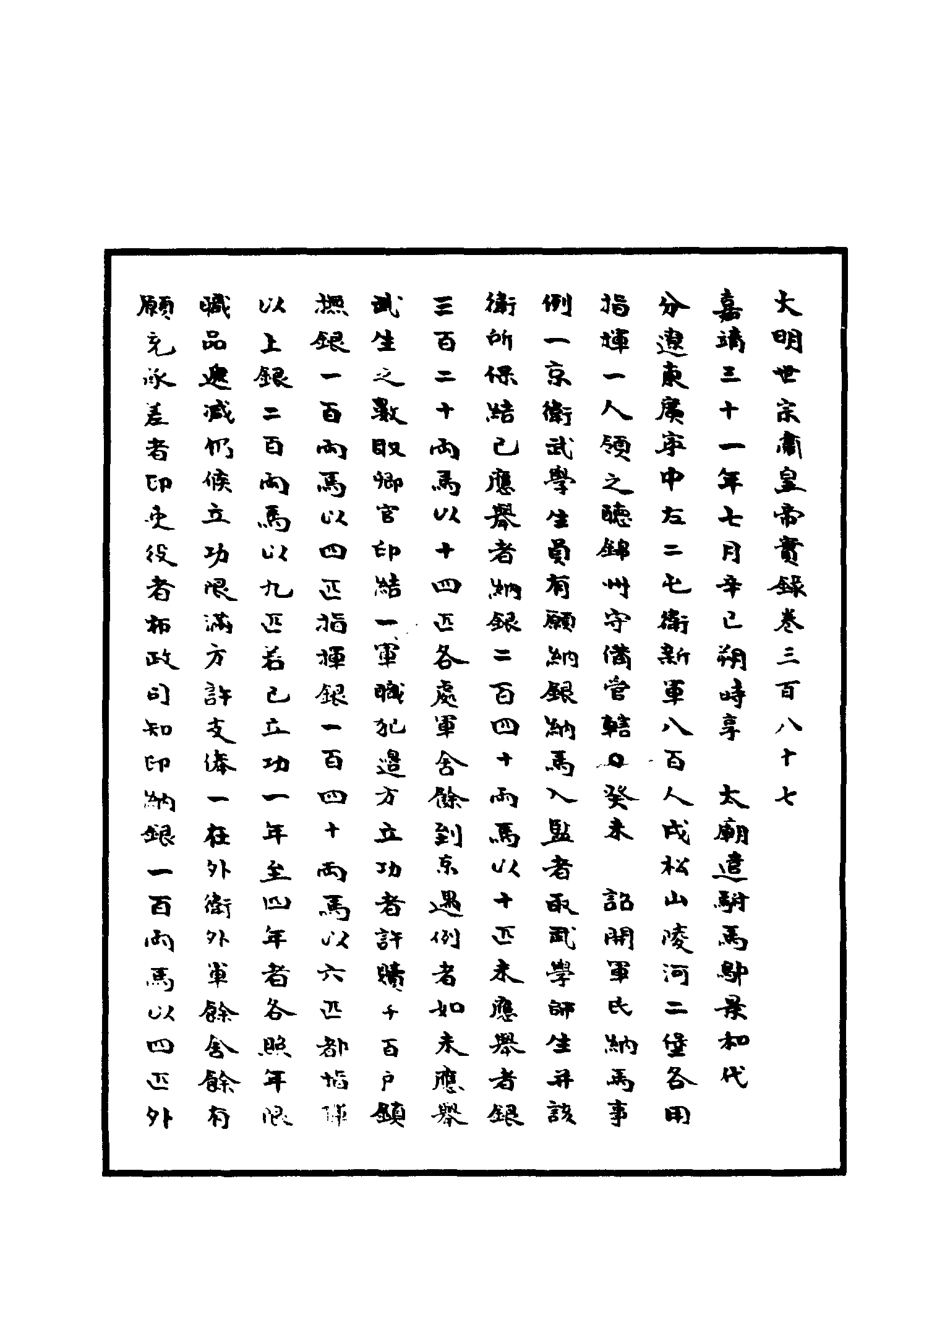 大明世宗肅皇帝實錄卷三百八十七
嘉靖三十一年七月辛已朔時享　太廟遣駙馬鄔景和代
分遼東廣寧中左二屯衛新軍八百人戍松山陵河二堡各用
指揮一人領之聽錦州守備管轄○癸未　詔開軍民納馬事
例一京衛武學生員有願納銀納馬入監者取武學師生并該
衛所保結已應舉者納銀二百四十兩馬以十匹未應舉者銀
三百二十兩馬以十四匹各處軍舍餘到京遇例者如未應舉
武生之數取鄉官印結一軍職犯邊方立功者許贖千百戶鎮
撫銀一百兩馬以四匹指揮銀一百四十兩馬以六匹都指揮
以上銀二百兩馬以九匹若已立功一年至四年者各照年限
職品遞減仍候立功限滿方許支俸一在外衛外軍餘舍餘有
願充承差者印吏役者布政司知印納銀一百兩馬以四匹外